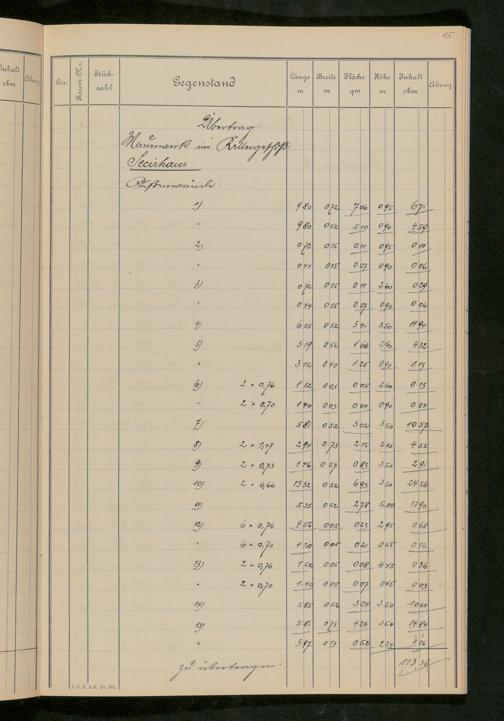 15
Pos. Raum-No. Stückzahl Gegenstand Länge m Breite m Fläche qm Höhe m Inhalt cbm Abzug
Übertrag.
Mauerwerk im Kellergeschoß
Secirhaus
Außenwände:
1) 9 80 0 72 7 06 0 95 6 71
" 9 80 0 52 5 10 0 90 4 59
2) 0 72 0 15 0 11 0 95 0 10
" 0 44 0 15 0 07 0 90 0 06
3) 0 72 0 15 0 11 2 60 0 29
" 0 44 0 15 0 07 0 90 0 06
4) 6 55 0 52 3 41 3 50 11 94
5) 3 19 0 52 1 66 2 60 4 32
" 3 12 0 40 1 25 0 90 1 13
6) 2 × 0,76 1 52 0 03 0 05 2 60 0 13
" 2 × 0,70 1 40 0 03 0 04 0 90 0 04
7) 5 81 0 52 3 02 3 50 10 57
8) 2 × 1,47 2 94 0 73 2 15 2 10 4 52
9) 2 × 0,73 1 46 0 57 0 83 3 50 2 91
10) 2 × 6,66 13 32 0 52 6 93 3 50 24 26
11) 5 35 0 52 2 78 5 00 13 90
12) 6 × 0,76 4 56 0 05 0 23 2 95 0 68
" 6 × 0,70 4 20 0 05 0 21
13) 2 × 0,76 1 52 0 05 0 08 4 45 0 36
" 2 × 0,70 1 40 0 05 0 07 0 45 0 03
14) 5 85 0 52 3 04 3 50 10 64
15) 5 81 0 73 4 24 3 50 14 84
" 3 97 0 13 0 52
zu übertragen: 113,36